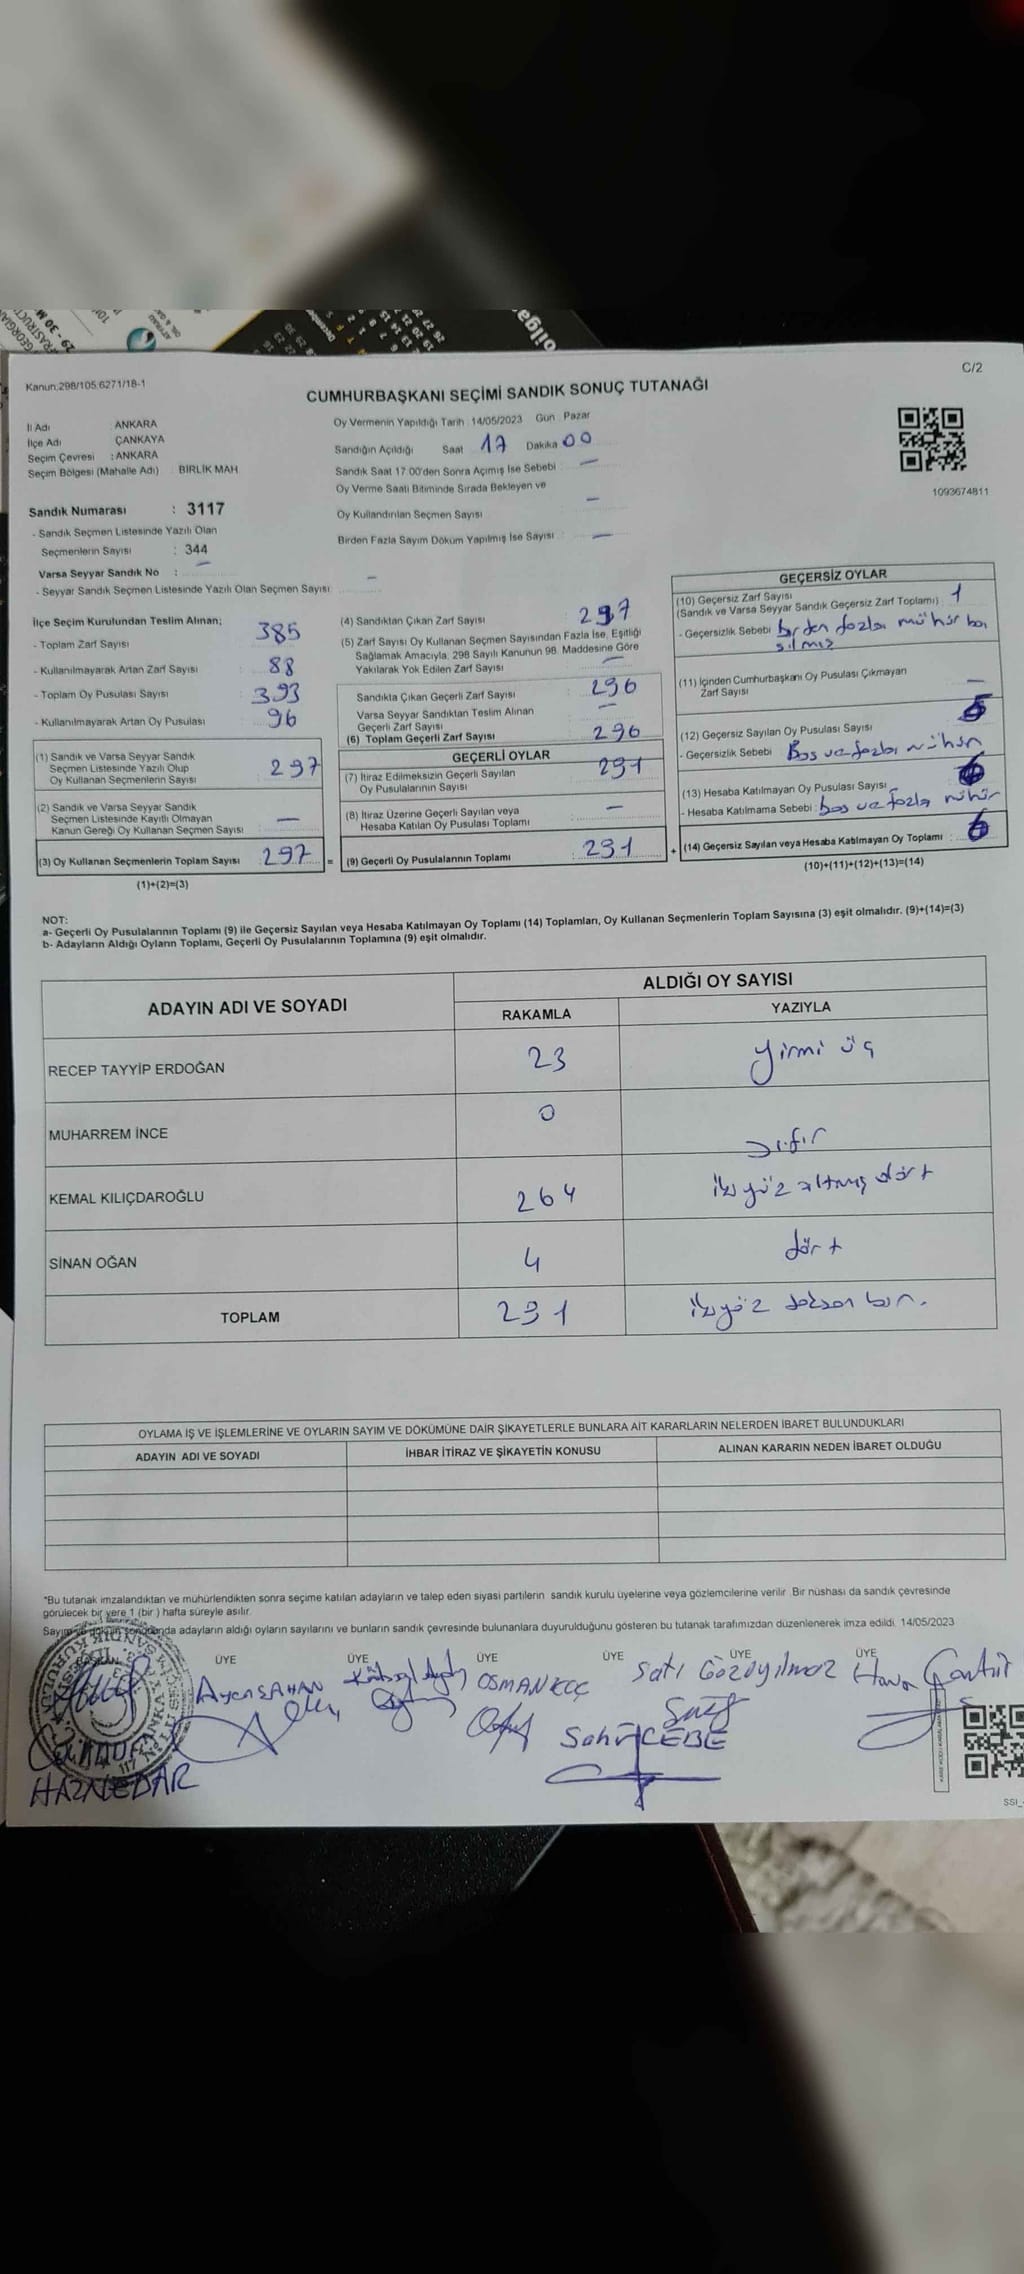 Kanun;298/105;6271/18-1
C/2
CUMHURBAŞKANI SEÇİMİ SANDIK SONUÇ TUTANAĞI
İl Adı ANKARA
İlçe Adı ÇANKAYA
Seçim Çevresi : ANKARA
Seçim Bölgesi (Mahalle Adı) : BİRLİK MAH
Sandık Numarası : 3117
- Sandık Seçmen Listesinde Yazılı Olan
Seçmenlerin Sayısı : 344
Varsa Seyyar Sandık No : —
- Seyyar Sandık Seçmen Listesinde Yazılı Olan Seçmen Sayısı —
Oy Vermenin Yapıldığı Tarih 14/05/2023 Gün Pazar
Sandığın Açıldığı Saat 17 Dakika 00
Sandık Saat 17:00'den Sonra Açımış İse Sebebi : —
Oy Verme Saati Bitiminde Sırada Bekleyen ve
Oy Kullandırılan Seçmen Sayısı —
Birden Fazla Sayım Döküm Yapılmış İse Sayısı : —
1093674811
İlçe Seçim Kurulundan Teslim Alınan;
- Toplam Zarf Sayısı : 385
- Kullanılmayarak Artan Zarf Sayısı : 88
- Toplam Oy Pusulası Sayısı : 393
- Kullanılmayarak Artan Oy Pusulası : 96
(1) Sandık ve Varsa Seyyar Sandık
Seçmen Listesinde Yazılı Olup
Oy Kullanan Seçmenlerin Sayısı : 297
(2) Sandık ve Varsa Seyyar Sandık
Seçmen Listesinde Kayıtlı Olmayan
Kanun Gereği Oy Kullanan Seçmen Sayısı —
(3) Oy Kullanan Seçmenlerin Toplam Sayısı : 297 =
(1)+(2)=(3)
(4) Sandıktan Çıkan Zarf Sayısı : 297
(5) Zarf Sayısı Oy Kullanan Seçmen Sayısından Fazla İse, Eşitliği
Sağlamak Amacıyla, 298 Sayılı Kanunun 98. Maddesine Göre
Yakılarak Yok Edilen Zarf Sayısı —
Sandıkta Çıkan Geçerli Zarf Sayısı : 296
Varsa Seyyar Sandıktan Teslim Alınan
Geçerli Zarf Sayısı —
(6) Toplam Geçerli Zarf Sayısı : 296
GEÇERLİ OYLAR
(7) İtiraz Edilmeksizin Geçerli Sayılan
Oy Pusulalarının Sayısı 291
(8) İtiraz Üzerine Geçerli Sayılan veya
Hesaba Katılan Oy Pusulası Toplamı —
(9) Geçerli Oy Pusulalarının Toplamı : 291 +
GEÇERSİZ OYLAR
(10) Geçersiz Zarf Sayısı
(Sandık ve Varsa Seyyar Sandık Geçersiz Zarf Toplamı) : 1
- Geçersizlik Sebebi birden fazla mühür ba
sılmış
(11) İçinden Cumhurbaşkanı Oy Pusulası Çıkmayan
Zarf Sayısı —
(12) Geçersiz Sayılan Oy Pusulası Sayısı
- Geçersizlik Sebebi : Boş ve fazla mühür
(13) Hesaba Katılmayan Oy Pusulası Sayısı
- Hesaba Katılmama Sebebi : boş ve fazla mühür
(14) Geçersiz Sayılan veya Hesaba Katılmayan Oy Toplamı : 6
(10)+(11)+(12)+(13)=(14)
NOT:
a- Geçerli Oy Pusulalarının Toplamı (9) ile Geçersiz Sayılan veya Hesaba Katılmayan Oy Toplamı (14) Toplamları, Oy Kullanan Seçmenlerin Toplam Sayısına (3) eşit olmalıdır. (9)+(14)=(3)
b- Adayların Aldığı Oyların Toplamı, Geçerli Oy Pusulalarının Toplamına (9) eşit olmalıdır.
ADAYIN ADI VE SOYADI ALDIĞI OY SAYISI
RAKAMLA YAZIYLA
RECEP TAYYİP ERDOĞAN 23 yirmi üç
MUHARREM İNCE 0 sıfır
KEMAL KILIÇDAROĞLU 264 ikiyüz altmış dört
SİNAN OĞAN 4 dört
TOPLAM 291 ikiyüz doksan bir.
OYLAMA İŞ VE İŞLEMLERİNE VE OYLARIN SAYIM VE DÖKÜMÜNE DAİR ŞİKAYETLERLE BUNLARA AİT KARARLARIN NELERDEN İBARET BULUNDUKLARI
ADAYIN ADI VE SOYADI İHBAR İTİRAZ VE ŞİKAYETİN KONUSU ALINAN KARARIN NEDEN İBARET OLDUĞU
*Bu tutanak imzalandıktan ve mühürlendikten sonra seçime katılan adayların ve talep eden siyasi partilerin sandık kurulu üyelerine veya gözlemcilerine verilir. Bir nüshası da sandık çevresinde
görülecek bir yere 1 (bir ) hafta süreyle asılır.
Sayım ve döküm sonucunda adayların aldığı oyların sayılarını ve bunların sandık çevresinde bulunanlara duyurulduğunu gösteren bu tutanak tarafımızdan düzenlenerek imza edildi. 14/05/2023
BAŞKAN ÜYE ÜYE ÜYE ÜYE ÜYE ÜYE
OSMAN KOÇ
Satı Gözüyılmaz
HAZNEDAR